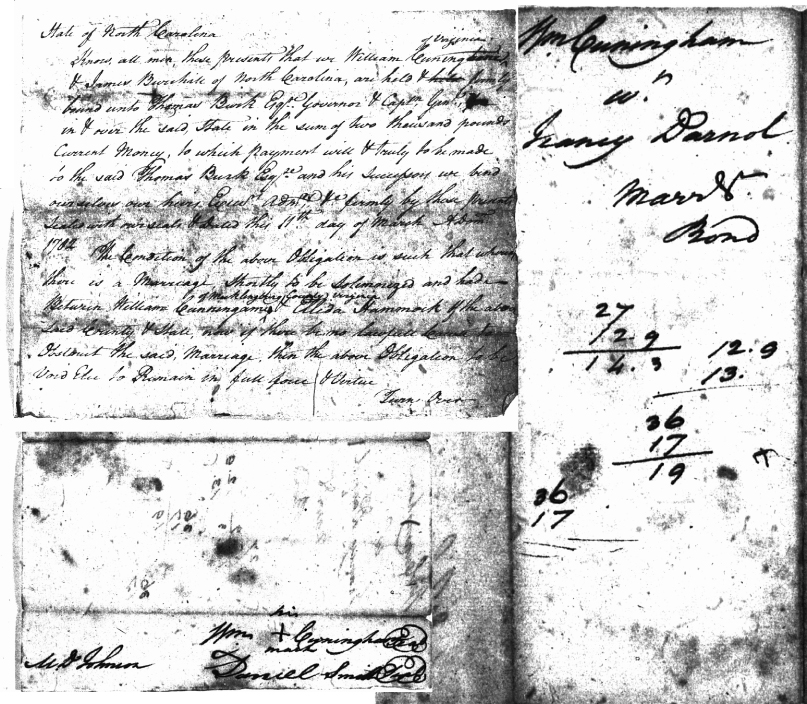 State of North Carolina
of Virginia
Know all men these presents that we William Cuningham
& James Burchill of North Carolina, are held & firmly
bound unto Thomas Burk Esqr. Governor & Captn Genl.
in & over the said State in the sum of two thousand pounds
Current Money, to which payment will & truly to be made
to the said Thomas Burk Esqre and his Successors we bind
ourselves our heirs, Execrs Admrs &c firmly by these presents
Sealed with our seals & dated this 11th day of March
1784
The Condition of the above Obligation is such that whereas
there is a Marriage Shortly to be Solemnized and had
of Mecklenburg County Virginia
Between William Cunningame & Hammock of the above
Said County & State, now if there be no lawfull to
Obstruct the said Marriage, then the above Obligation to be
Void Else to Remain in full force & Virtue
Turn Over
his
Wm + Cuningham Seal
mark
Mc D Johnson
Daniel Small Seal
Wm Cuningham
Nancy Darnol
Marre
Bond
27
12.9
14.3
12.9
13.
36
17
19
36
17